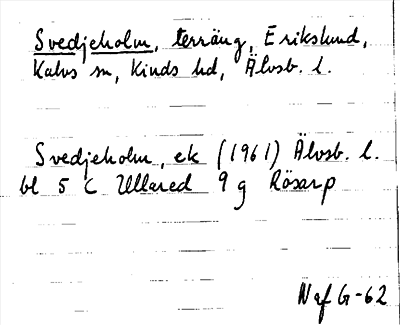 Svedjeholm, terräng, Erikslund,
Kalvs sn, Kinds hd, Älvsb. l.
Svedjeholm, ek (1961) Älvsb. l.
bl 5 C Ullared 9 g Rösarp
Naf G-62